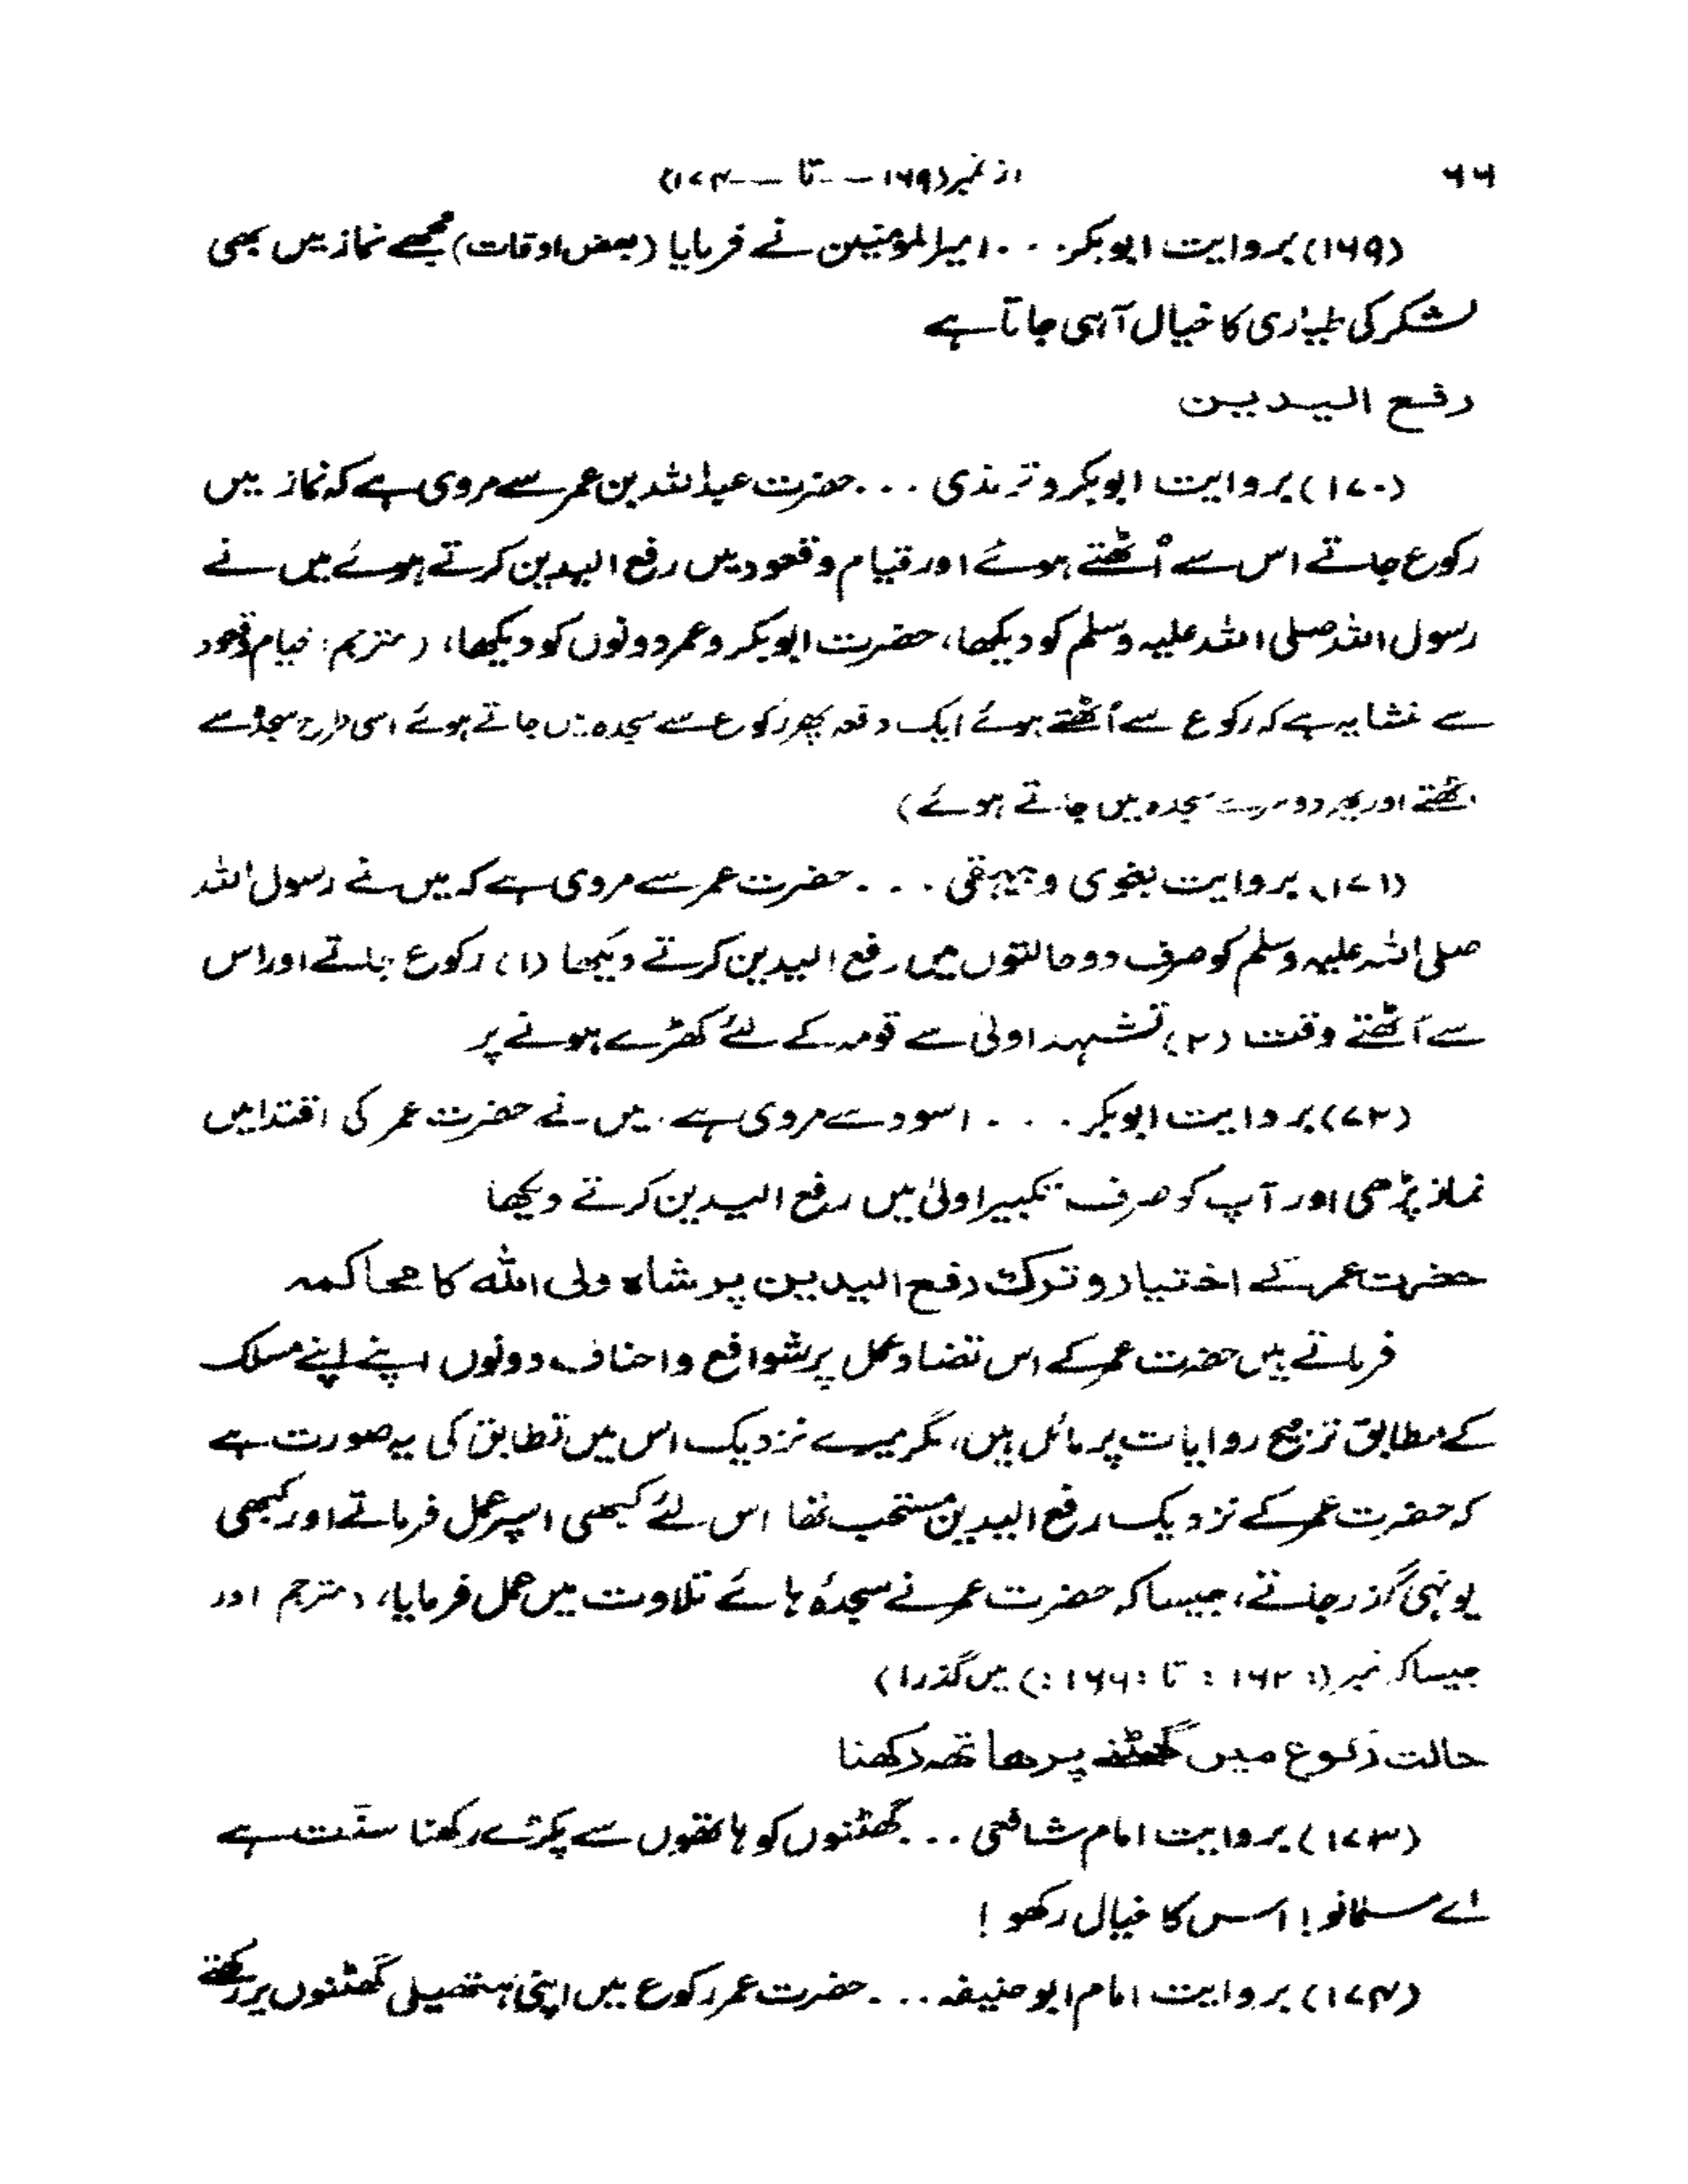 ۶۶ از نمبر (۱۶۹ --- تا --- ۱۷۴)
(۱۶۹) بروایت ابوبکر . . . امیرالمومنین نے فرمایا (بعض اوقات) مجھے نماز میں بھی
لشکر کی طیاری کا خیال آہی جاتا ہے
رفع الیدین
(۱۷۰) بروایت ابوبکر و ترمذی . . . حضرت عبداللہ بن عمر سے مروی ہے کہ نماز میں
رکوع جاتے اس سے اُٹھتے ہوئے اور قیام و قعود میں رفع الیدین کرتے ہوئے میں نے
رسول اللہ صلی اللہ علیہ وسلم کو دیکھا، حضرت ابوبکر و عمر دونوں کو دیکھا، (مترجم: قیام وقعود
سے منشا یہ ہے کہ رکوع سے اُٹھتے ہوئے ایک دفعہ پھر رکوع سے سجدہ میں جاتے ہوئے اسی طرح سجدہ سے
اٹھتے اور پھر دوسرے سجدہ میں جاتے ہوئے)
(۱۷۱) بروایت بغوی و بیہقی . . . حضرت عمر سے مروی ہے کہ میں نے رسول اللہ
صلی اللہ علیہ وسلم کو صرف دو حالتوں میں رفع الیدین کرتے دیکھا (۱) رکوع جاتے اور اس
سے اٹھتے وقت (۲) تشہد اولیٰ سے قومہ کے لئے کھڑے ہونے پر
(۷۲) بروایت ابوبکر . . . اسود سے مروی ہے . میں نے حضرت عمر کی اقتدا میں
نماز پڑھی اور آپ کو صرف تکبیر اولیٰ میں رفع الیدین کرتے دیکھا
حضرت عمر کے اختیار و ترک رفع الیدین پر شاہ ولی اللہ کا محاکمہ
فرماتے ہیں حضرت عمر کے اس تضاد عمل پر شوافع و احناف دونوں اپنے اپنے مسلک
کے مطابق ترجیح روایات پر مائل ہیں، مگر میرے نزدیک اس میں تطابق کی یہ صورت ہے
کہ حضرت عمر کے نزدیک رفع الیدین مستحب تھا اس لئے کبھی اسپر عمل فرماتے اور کبھی
یونہی گذر جاتے، جیسا کہ حضرت عمر نے سجدۂ ہائے تلاوت میں عمل فرمایا، (مترجم اور
جیساکہ نمبر (: ۱۶۲ : تا :۱۶۶ :) میں گذرا)
حالت رکوع میں گھٹنے پر ھاتھ رکھنا
(۱۷۳) بروایت امام شافعی . . . گھٹنوں کو ہاتھوں سے پکڑے رکھنا سنّت ہے
اے مسلمانو! اس کا خیال رکھو !
(۱۷۴) بروایت امام ابو حنیفہ . . . حضرت عمر رکوع میں اپنی ہتھیلی گھٹنوں پر رکھتے